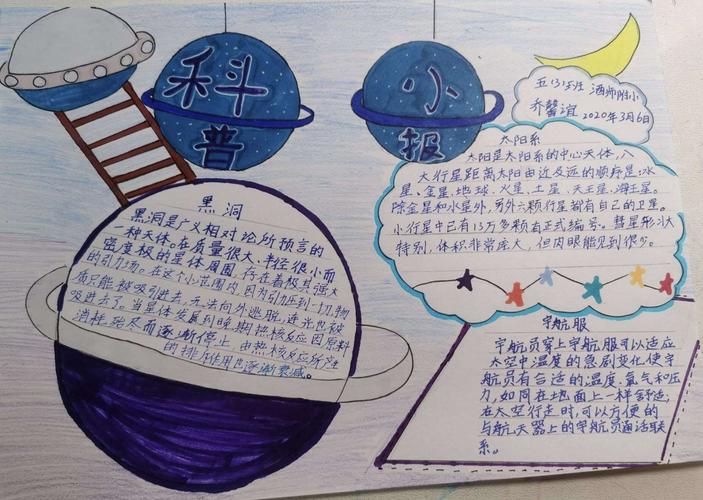 科普
小报
五(3)班 酒师附小
乔馨谊 2020年3月6日
黑洞
黑洞是广义相对论所预言的
一种天体。在质量很大、半径很小而
密度极的星体周围,存在着极其强大
的引力场。在这个小范围内,因为引力压到一切物
质只能被吸引进去,无法向外逃脱,连光也被
吸进去了。当星体发展到晚期热核反应因原料
消耗殆尽而逐渐停止,由热核反应所产生
的排斥作用也逐渐衰减。
太阳系
太阳是太阳系的中心天体,八
大行星距离太阳由近及远的顺序是:水
星、金星、地球、火星、土星、天王星、海王星。
除金星和水星外,另外六颗行星都有自己的卫星。
小行星中已有13万多颗有正式编号。彗星形状
特别,体积非常庞大,但肉眼能见到很少。
宇航服
宇航员穿上宇航服可以适应
太空中温度的急剧变化,使宇
航员有合适的温度、氧气和压
力,如同在地面上一样舒适;
在太空行走时,可以方便的
与航天器上的宇航员通话联
系。